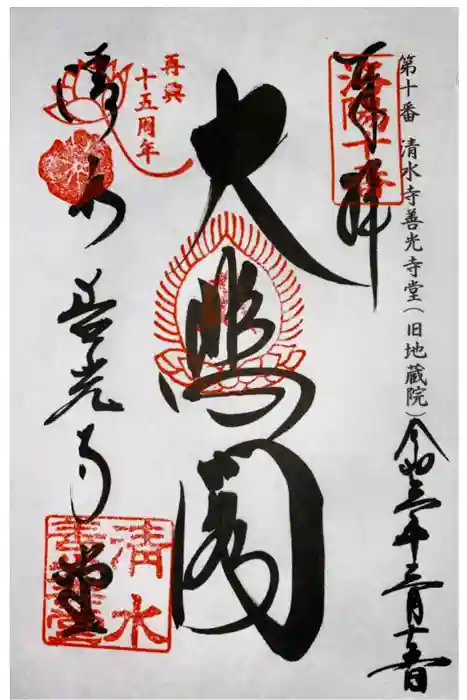 第十番 清水寺善光寺堂(旧地蔵院)
令和三年三月十五日
奉拝
洛陽十番
大悲閣
再興
十五周年
清水善光寺堂
清水
善光寺堂